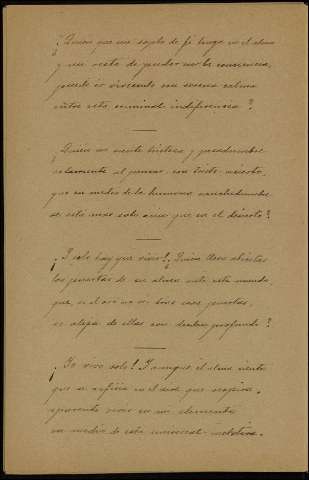 ¿Quién que un soplo de fé tenga en el alma
y un resto de pudor en la conciencia,
puede ir viviendo con serena calma
entre esta criminal indiferencia?
¿Quién no siente tristeza y pesadumbre
solamente al pensar, con tédio incierto,
que en medio de la humana muchedumbre
se está mas solo aun que en el desierto?
¡Y solo hay que vivir! ¿Quién deja abiertas
las puertas de su alma ante este mundo,
que, si el oro no vé tras esas puertas,
se aleja de ellas con desden profundo?
¡Yo vivo solo! Y aunque el alma siento
que se asfixia en el aire que respira,
aparento vivir en mi elemento
en medio de esta universal mentira.